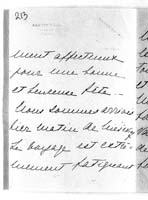 213
ment affectueux
pour une bonne
et heureuse fête.
Nous sommes arrivés
hier matin de
Le voyage est extrê-
mement fatiguant